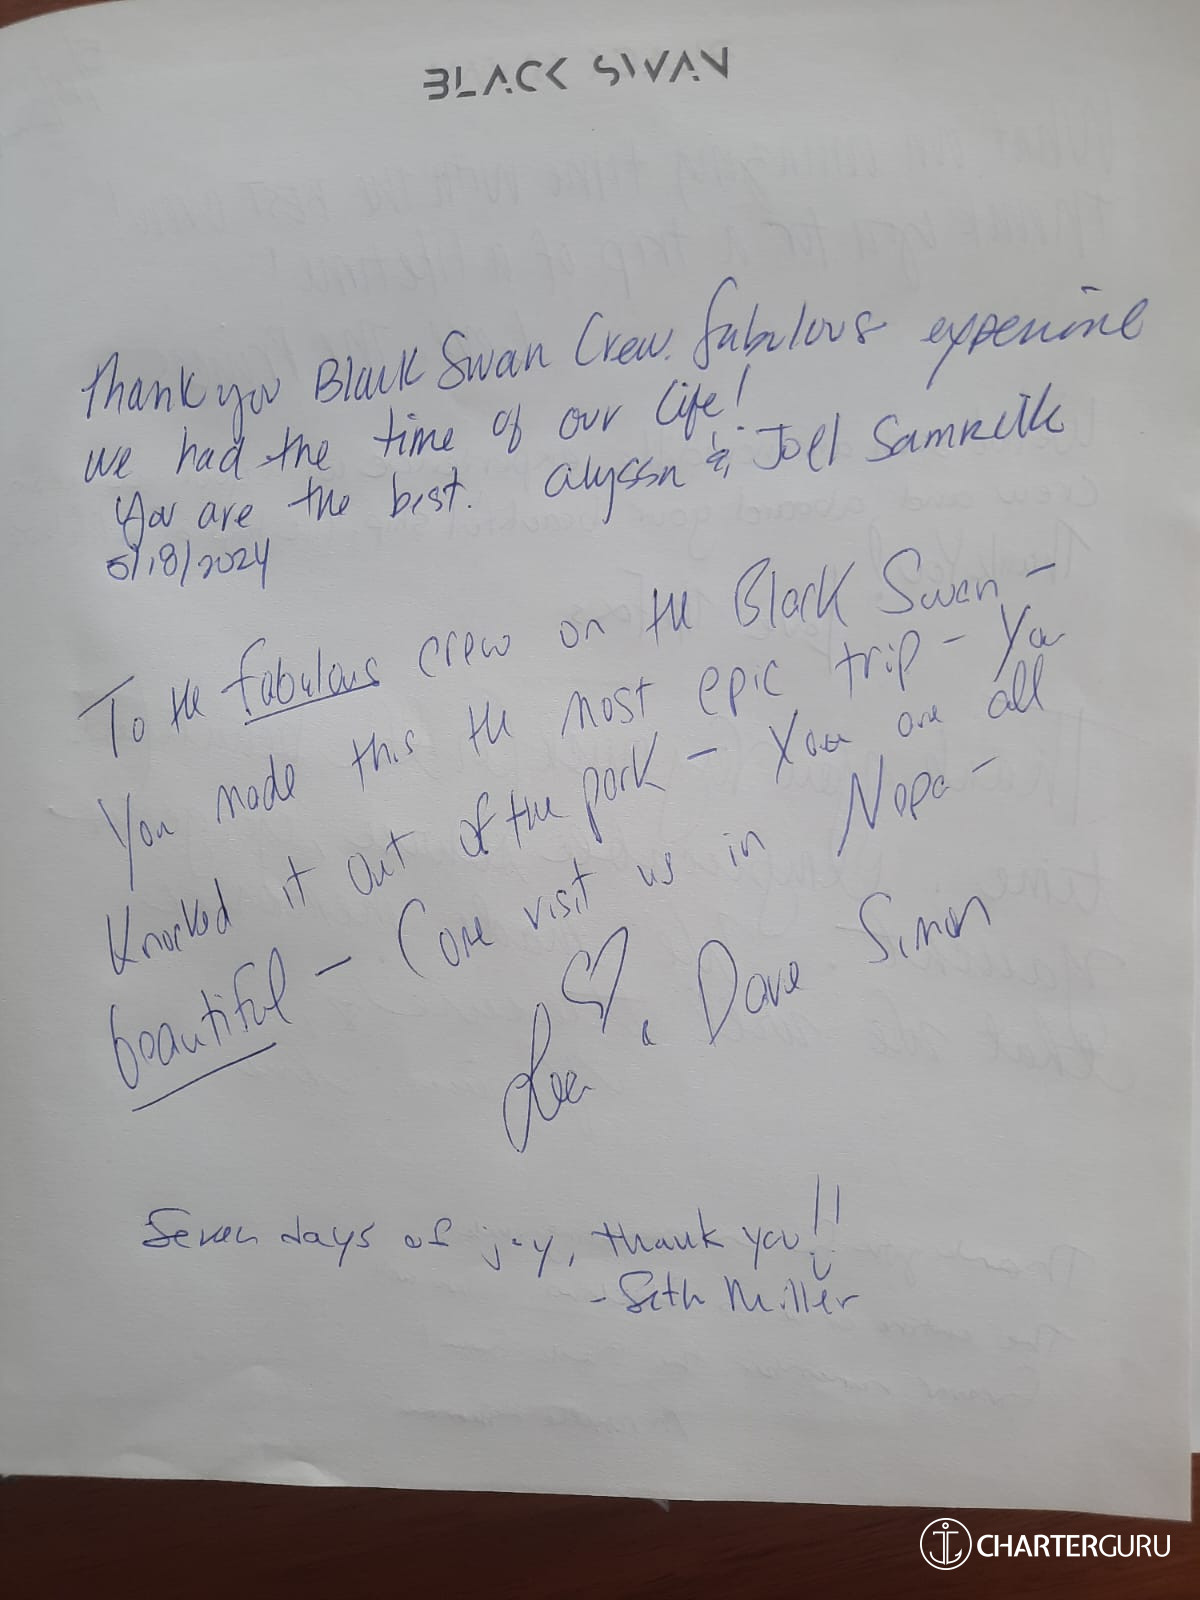 BLACK SWAN
Thank you Black Swan Crew. fabulous experience
we had the time of our life!
You are the best. Alyssa & Joel
5/18/2024
To the fabulous crew on the Black Swan -
You made this the most epic trip - You
Knocked it out of the park - You are all
beautiful - Come visit us in Napa -
& Dave Simon
Seven days of joy, thank you!!
- Seth Miller
CHARTERGURU